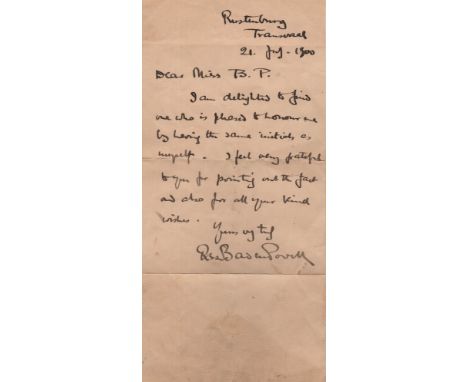 Rustenburg
Transvaal
21. July. 1900
Dear Miss B. P.
I am delighted to find
one who is pleased to honour me
by having the same initials as
myself. I feel very grateful
to you for pointing out the fact
and also for all your kind
wishes.
Yours truly
Baden-Powell